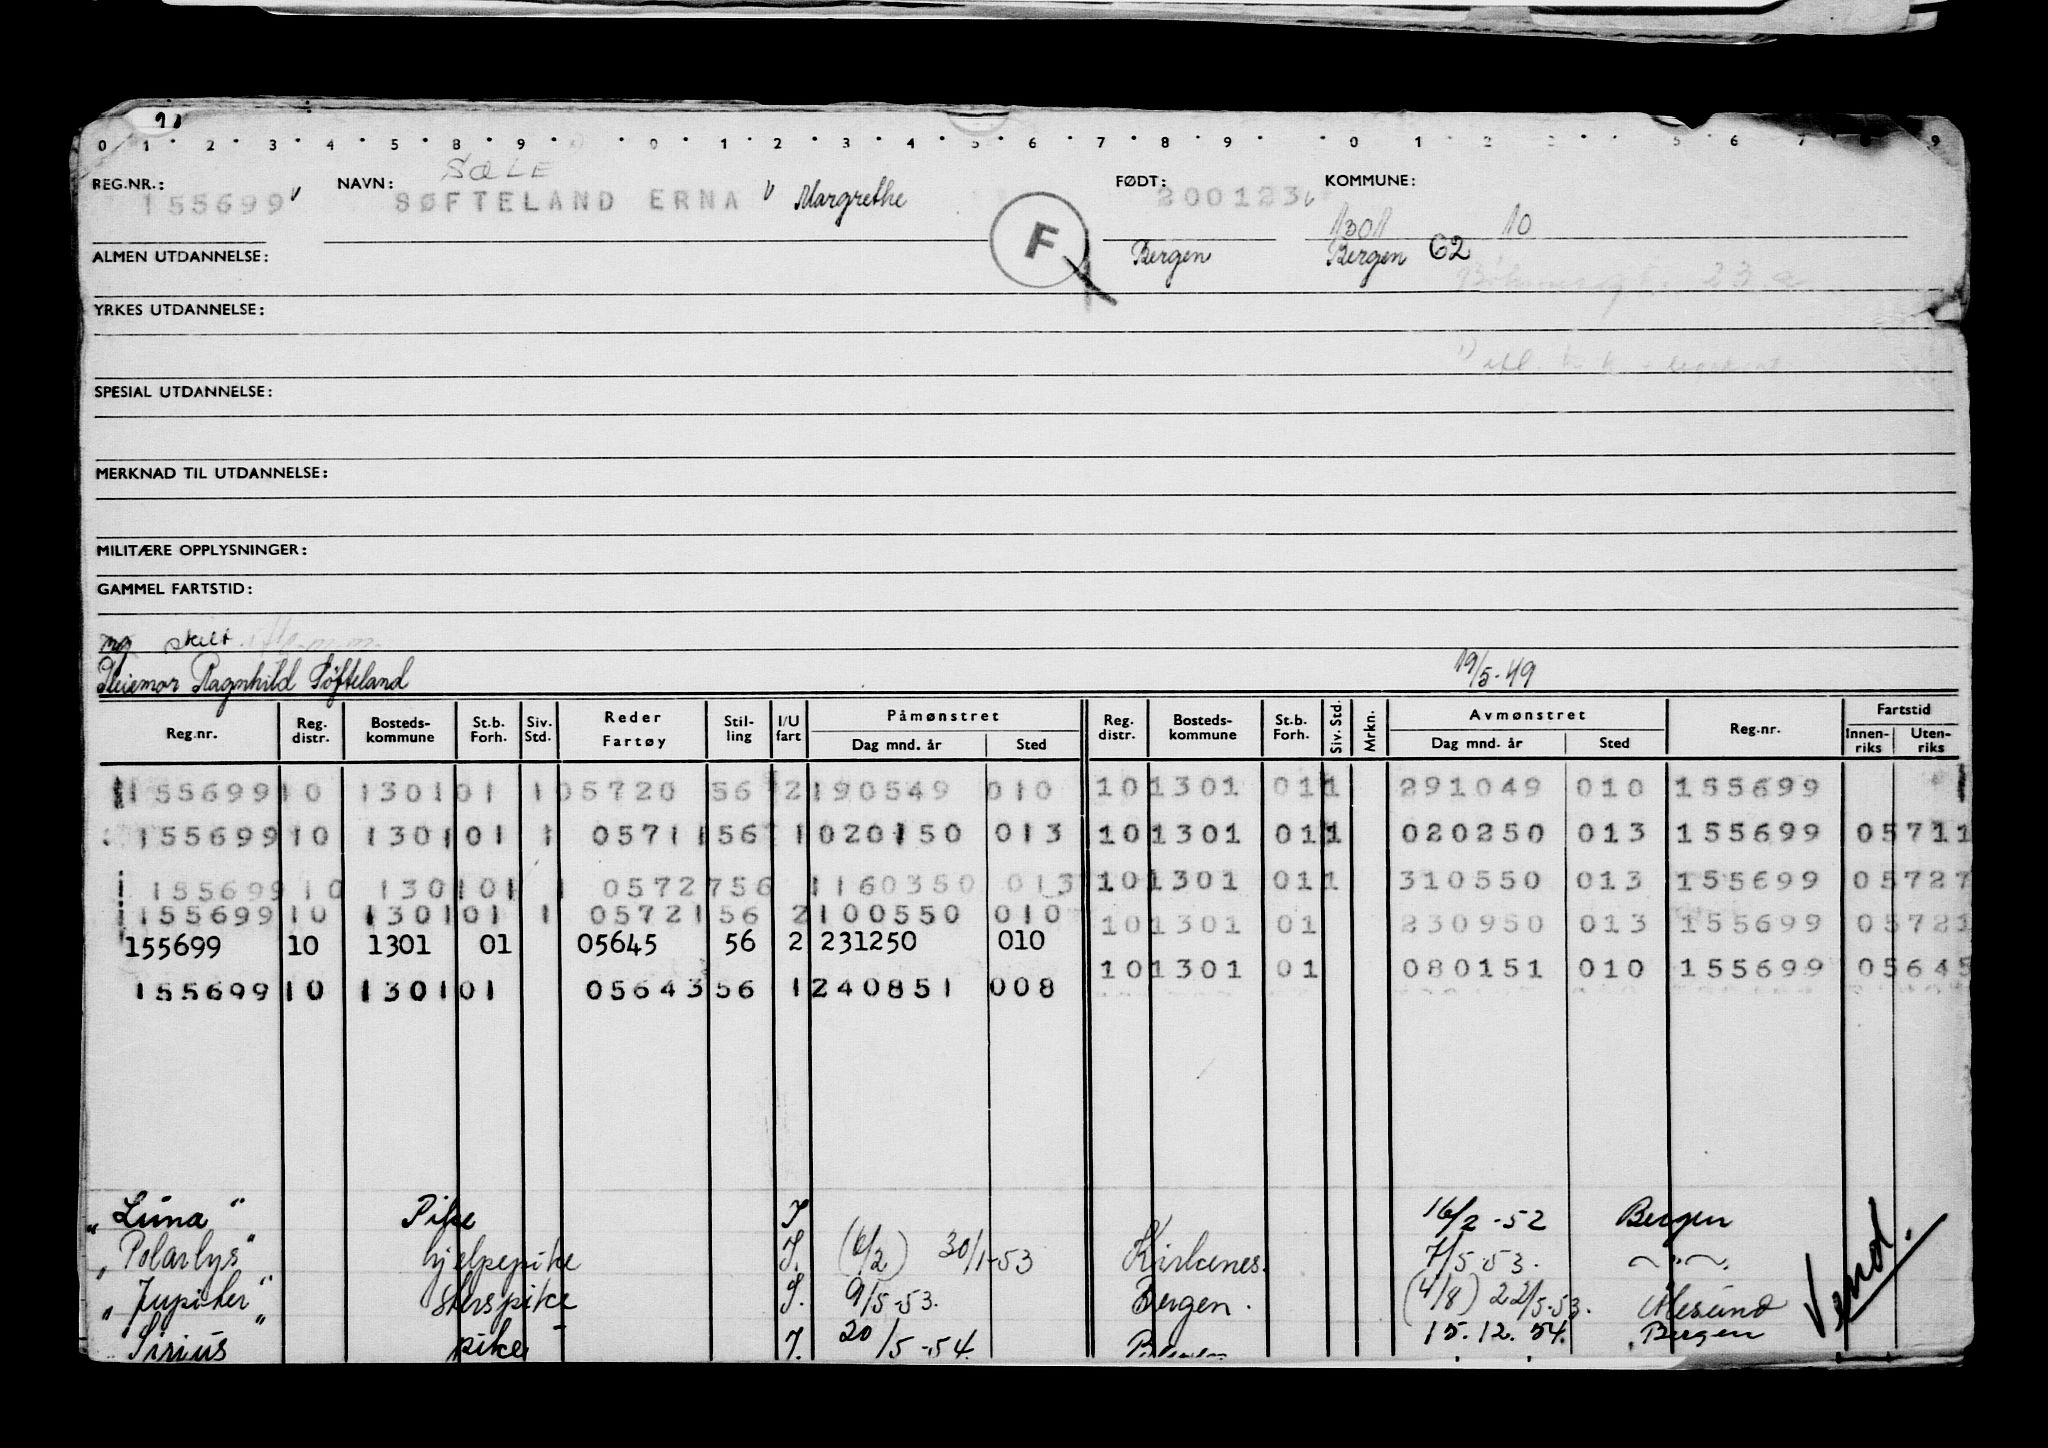 0 1 2 3 4 5 8 9 0 1 2 3 4 5 6 7 8 9 0 1 2 3 5 6 7 9
SæLE
REG.NR.: 155699 NAVN: SØFTELAND ERNA Margrethe FØDT: 200123 KOMMUNE:
1301 10
F
ALMEN UTDANNELSE: Bergen Bergen G2
23
YRKES UTDANNELSE:
SPESIAL UTDANNELSE:
MERKNAD TIL UTDANNELSE:
MILITÆRE OPPLYSNINGER:
GAMMEL FARTSTID:
ng skilt
Ragnhild Søfteland 19/5-49
Reg.nr. Reg. distr. Bosteds-kommune St.b. Forh. Siv. Std. Reder Fartøy Stil-ling I/U fart Påmønstret Dag mnd. år Sted Reg. distr. Bosteds-kommune St.b. Forh. Siv. Std. Mrkn. Avmønstret Dag mnd. år Sted Reg.nr. Fartstid Innen-riks Uten-riks
155699 10 1301 01 1 05720 56 2 190549 010 10 1301 01 1 291049 010 155699
155699 10 1301 01 1 05711 56 1 020150 013 10 1301 01 1 020250 013 155699 05711
155699 10 1301 01 1 05727 56 1 160350 013 10 1301 01 1 310550 013 155699 05727
155699 10 1301 01 1 05721 56 2 100550 010 10 1301 01 230950 013 155699 05721
155699 10 1301 01 05645 56 2 231250 010 10 1301 01 080151 010 155699 05645
155699 10 1301 01 05643 56 1 240851 008
"Luna" Pike I 16/2-52 Bergen
"Polarlys" hjelpepike I. (6/2) 30/1-53 Kirkenes. 7/5-53. —"—
"Jupiter" I. 9/5-53. Bergen. (4/8) 22/5-53. Ålesund
"Sirius" pike I. 20/5-54. 15.12.54. Bergen
Vend.